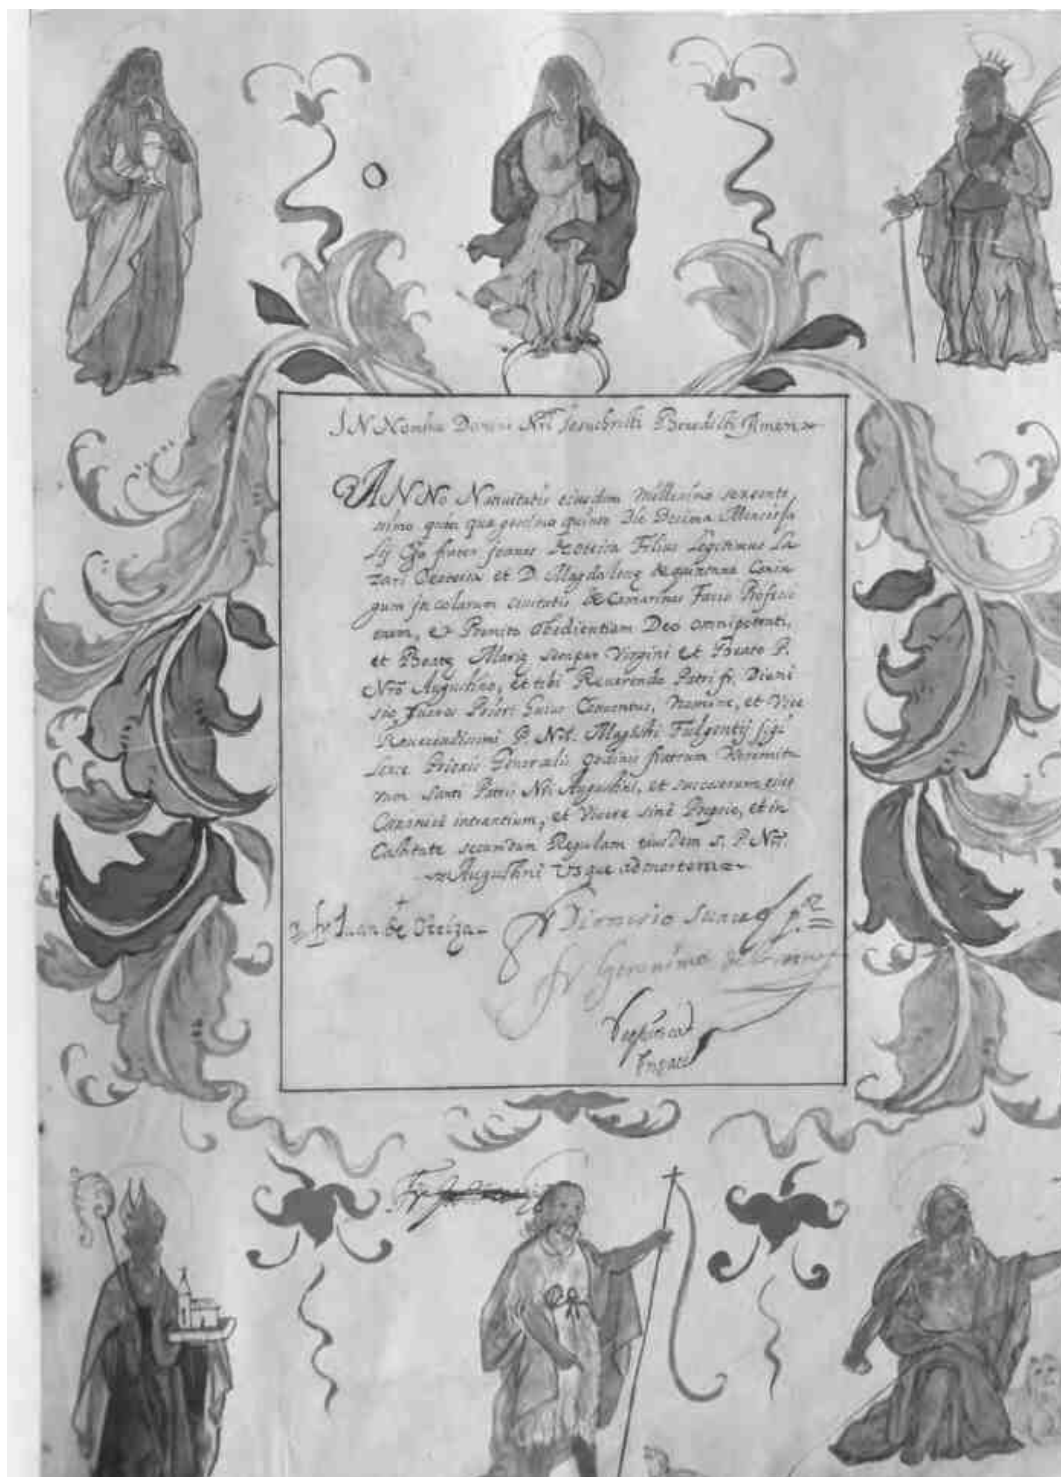 IN Nomine Domini Nrĩ Jesuchristi Benedicti Amen
ANNO Natiuitatis eiusdem Millesimo sexcente
simo quin qua gesimo quinto Die Decima Mensis Ju
lij Ego frater Joanes De oteiza Filius Legitimus La
zari Deoteiza et D. Magdalenę de quintana Coniu
gum jn colarum ciuitatis de Camarinas Facio Profesio
nem, et Promito obedientiam Deo omnipotenti,
et Beatę Marię semper Virgini et Beato P.
Nrõ Augustino, et tibi Reuerendo Patri fr. Dioni
sio suares Priori huius Conuentus, Nomine, et Vice
Reuerendissimi P. Nrĩ. Magistri Fulgentij
Prioris Generalis ordinis fratrum Heremita
rum Santi Patris Nrĩ Augustini, et succesorum eius
Canonicè intrantium, et Viuere sinè Proprio, et in
Castitate secundum Regulam eiusdem s. P. Nrĩ.
Augustini Vsque ad mortem
fr Juan de Oteiza
fr Dionisio Suares p.or
fr Geronimo de